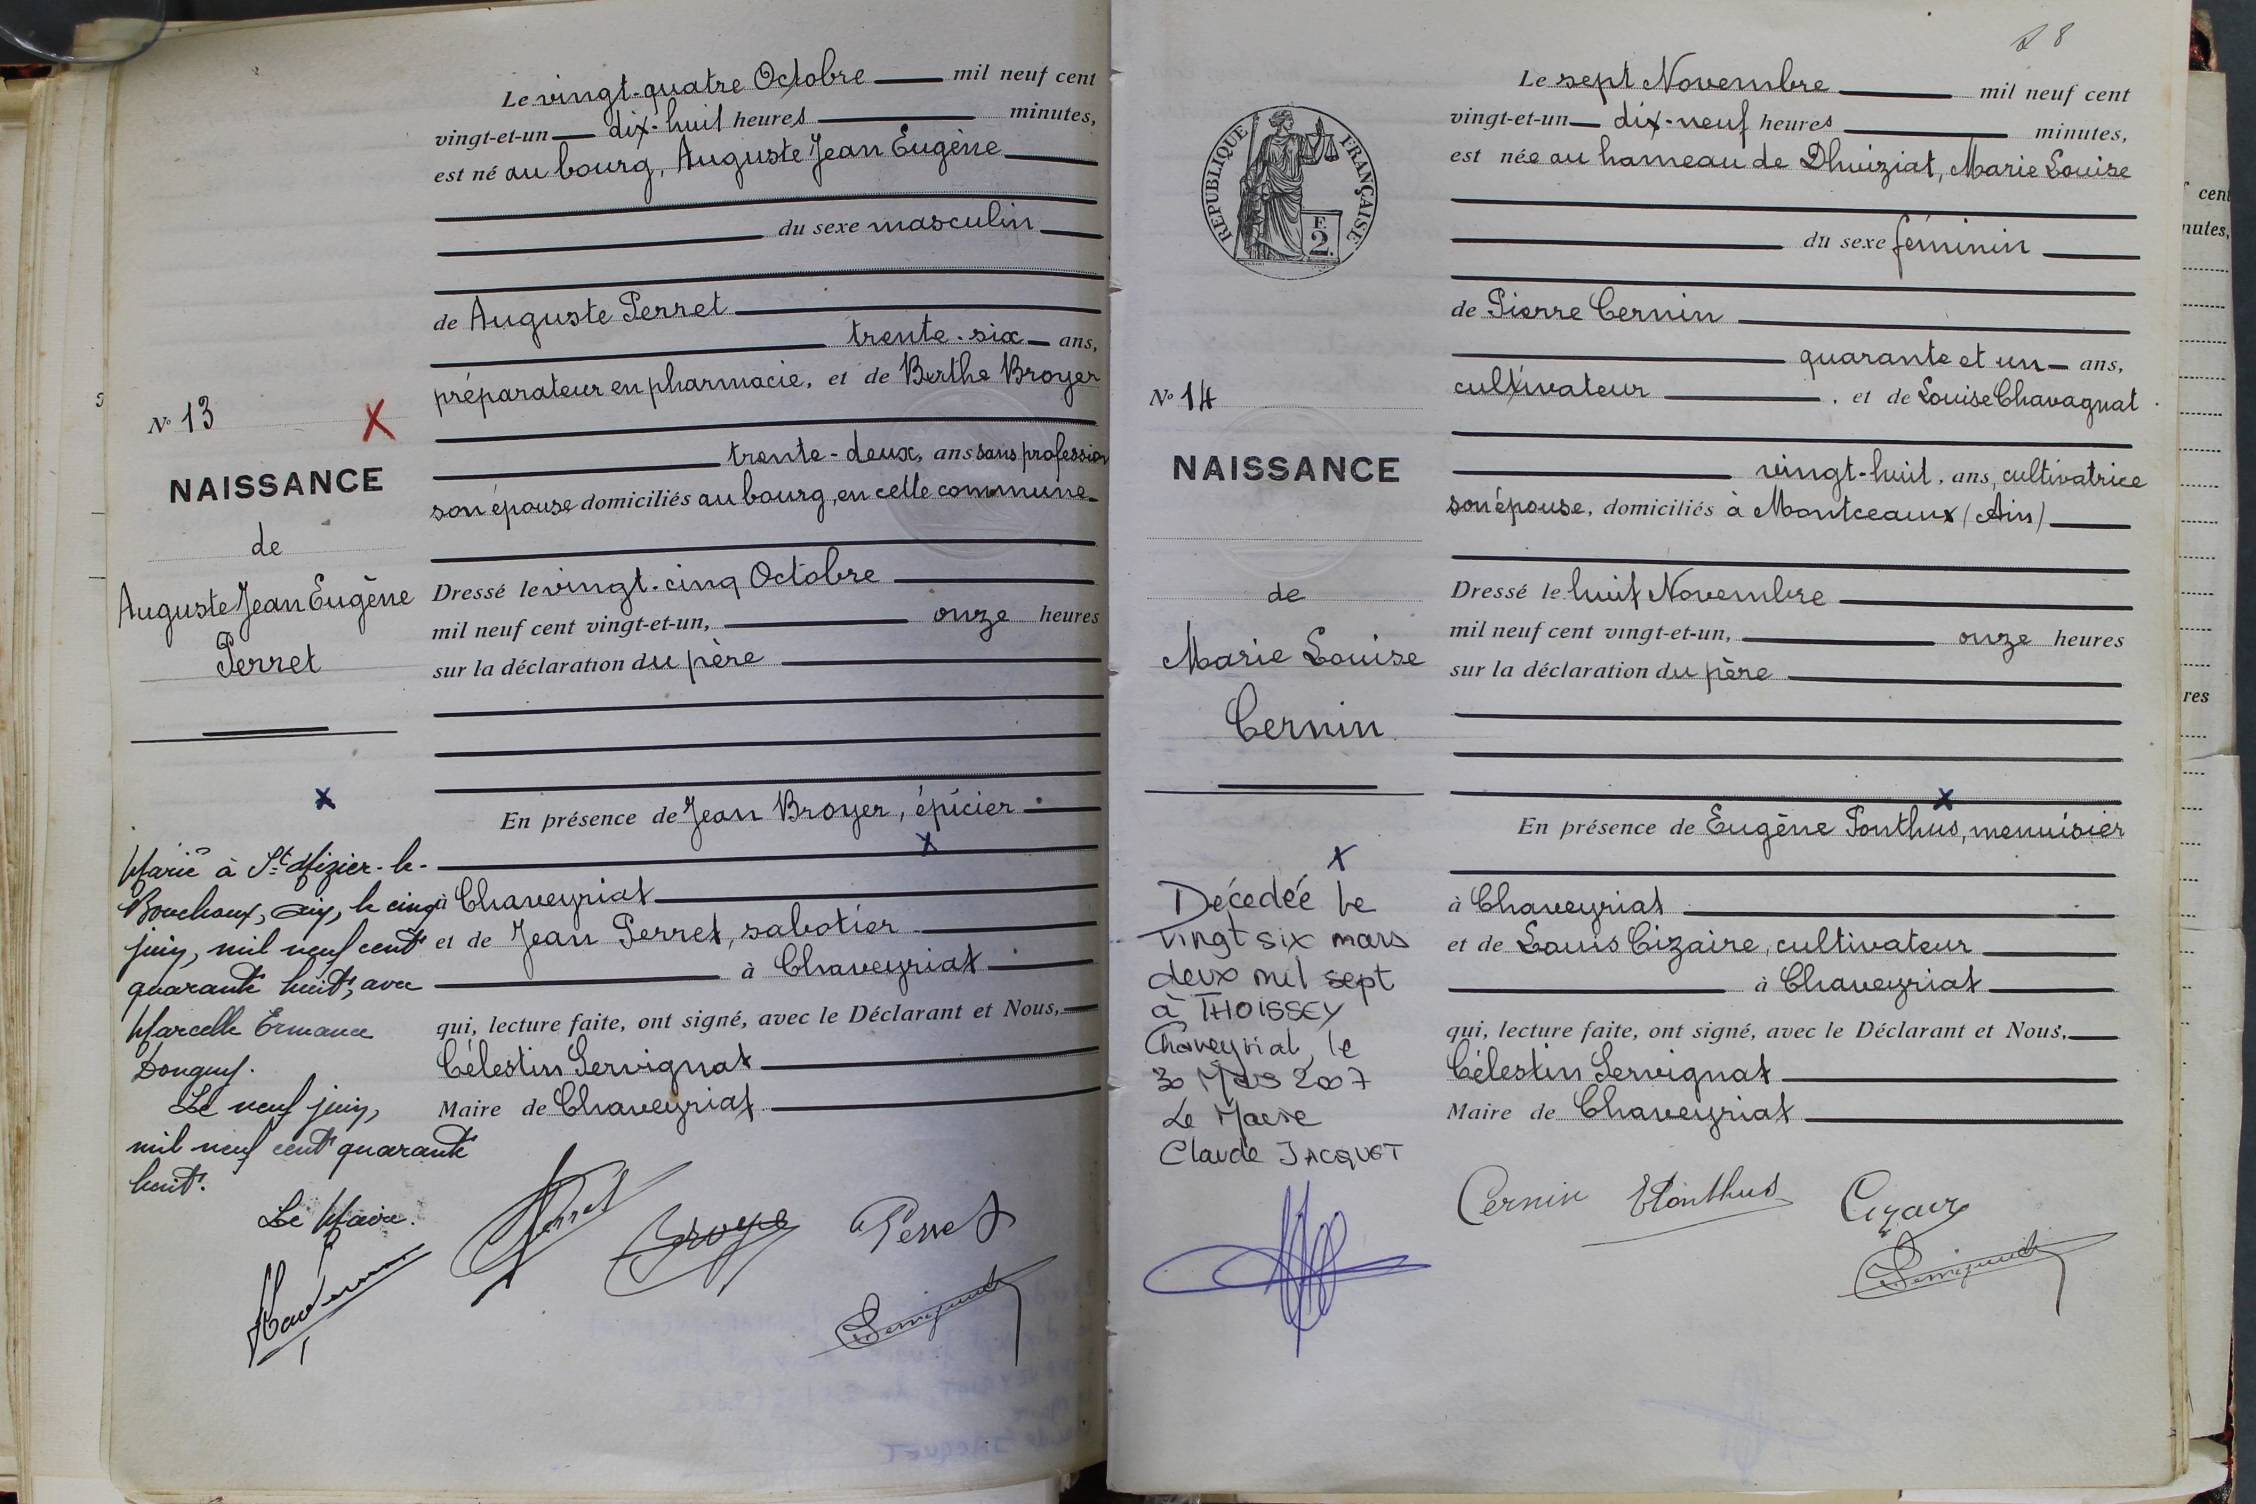 Le vingt-quatre Octobre mil neuf cent
vingt-et-un dix-huit heures minutes,
est né au bourg, Auguste Jean Eugène
du sexe masculin
de Auguste Perret
trente-six ans,
préparateur en pharmacie, et de Berthe Broyer
trente-deux, ans sans profession
son épouse domiciliés au bourg, en cette commune
Dressé le vingt-cinq Octobre
mil neuf cent vingt-et-un, onze heures
sur la déclaration du père
En présence de Jean Broyer, épicier
à Chaveyriat
et de Jean Perret, sabotier
à Chaveyriat
qui, lecture faite, ont signé, avec le Déclarant et Nous,
Célestin Servignat
Maire de Chaveyriat
N° 13
NAISSANCE
de
Auguste Jean Eugène
Perret
Marié à St Nizier-le-
Bouchoux, Ain, le cinq
juin, mil neuf cent
quarante huit, avec
Marcelle Ermance
Donguy.
Le neuf juin,
mil neuf cent quarante
huit.
Le Maire.
Perret Broyer Perret
28
Le sept Novembre mil neuf cent
vingt-et-un dix-neuf heures minutes,
est née au hameau de Dhuiziat, Marie Louise
du sexe féminin
de Pierre Cernin
quarante et un ans,
cultivateur, et de Louise Chavagnat
vingt-huit, ans, cultivatrice
son épouse, domiciliés à Montceaux (Ain)
Dressé le huit Novembre
mil neuf cent vingt-et-un, onze heures
sur la déclaration du père
En présence de Eugène Ponthus, menuisier
à Chaveyriat
et de Louis Cizaire, cultivateur
à Chaveyriat
qui, lecture faite, ont signé, avec le Déclarant et Nous,
Célestin Servignat
Maire de Chaveyriat
RÉPUBLIQUE FRANÇAISE
F.
2.
N° 14
NAISSANCE
de
Marie Louise
Cernin
Décédée le
vingt six mars
deux mil sept
à THOISSEY
Chaveyriat, le
30 Mars 2007
Le Maire
Claude JACQUET
Cernin E Ponthus Cizaire
Servignat
cent
nutes,
res